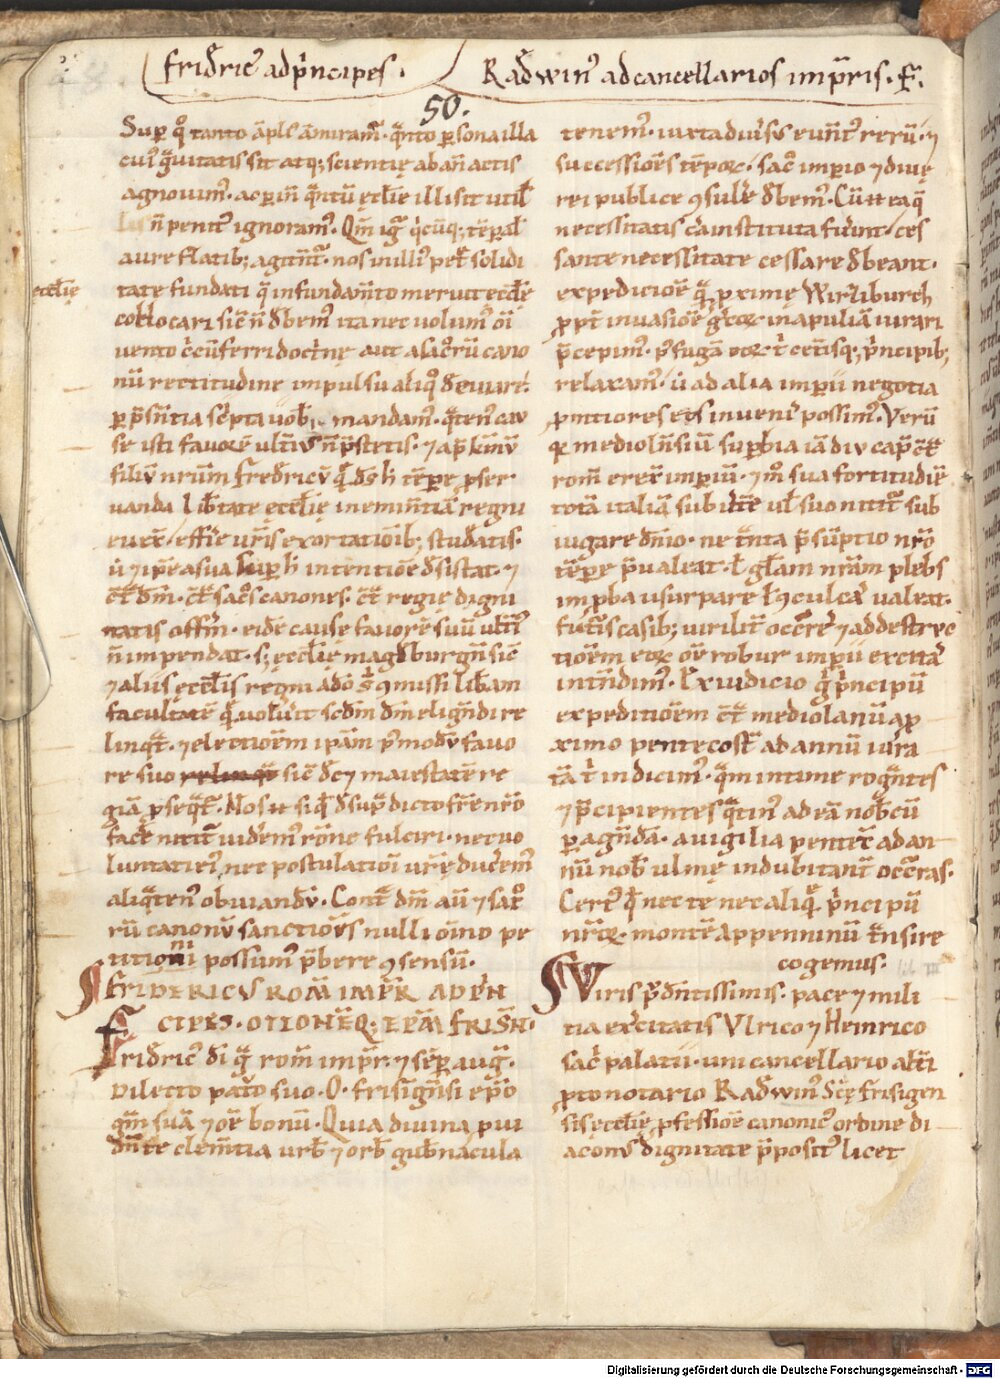 fridric' ad p'ncipes.
Radwin' ad cancellarios imp'ris. F.
50.
Sup q° tanto apl's amiram'. q'nto psona illa
cui' g'vitatis sit atq; scientię ab an actis
agnovim'. ac p in q'ntū ęccl'ie illi sit util'
n penit' ignoram'. Qm ig' q'cūq; tēpal'
aure flatib; agitnt'. nos in illi' pet' solidi
ęccl'ię
tate fundati q in fundam'to meruit eccl'ię
collocari sic n dbem' ita nec volum' oi
vento c'cūferri doct'ne aut alic'rū cano
nū rectitudine impulsu aliq° deviare.
p p'sentia sc'pta vob, mandam'. q'ten' cau
se isti favorē ult'iv' n p'stetis. 7 ap' km'v
filiv nrūm fredricv q ds h tēpe pser
vanda lib'tate ęccl'ię in emin'tiā regni
evex' effic'e vris exortatioib; studatis.
ū 7 ipe a sua sup h intentioe dsistat. 7
ct' dm. ct' sac'os canones. ct' regię digni
tatis offm. eide cause favore suū ult'i'
n impendat. s; ęccl'ię magdburgn sic
7 aliis ęccl'iis regni a dō s' 9missi lib'am
facultatē q. voluit scdm dm eligndi re
linq't. 7 electioem ipam p'modv favo
re suo relinq't sic dc7 maiestatē re
giā pseq't'. Nos si q' dsup'dicto frē nrō
face nitit' vidrem' rōne fulciri. nec vo
luntati ei', nec postulationi vrę ducem'
aliq'ten' obviandv. Cont' dm au 7 sac'o
rū canonv sanctioēs nulli oino pe
titioni possum' p'bere 9sensū.
FRIDERICVS ROM IMP'R AD P'N
CIPES. OTTONEQ; EPM FRISN.
Fridric' di g' rom imp'r. 7 sēp aug'.
Dilecto pat'o suo. O. frisign'si ep'o
gm suā 7 oē bonū. Quia divina pvi
dn'te clem'tia urb' 7 orb' gub'nacula
tenem'. iuxta div'sos event' rerū. 7
successiōes tēpoę. sac'o impio 7 divę
rei publice 9sul'e dbem'. Cū ea q
necessitatis c'a instituta fu'int ces
sante necessitate cessare dbeant.
expeditioē q' pximę Wirziburch
ppt' invasioē g'coę in apuliā iurari
p'cepim'. p' fugā eoę t' cet'isq; p'ncipib;
relaxam'. ū ad alia impii negotia
pmtiores eos inveni' possim'. Verū
q' mediolnsiū supbia iā div cap' ct'
rom erex' impiū. 7 m° sua fortitudiē
totā italiā subvtē vl' suo nitit' sub
iugare dnio. ne t'nta p'sūptio nrō
tēpe p'valeat. l' gl'am nrām plebs
impba usurpare l' 9culcar' valeat.
futu'is casib; virilit' occ're 7 ad destruc
tioēm eoę oē robur impii excita'
intēdim'. Ex iudicio g' p'ncipū
expeditioēm ct' mediolanū a px
ximo pentecost' ad annū iura
tā t' indicim'. q'm intime rog'ntes
7 p'cipientes q'tin' ad eā nob'cū
pagn'dā. a vigilia pentec' ad an
nū nob' ulmę indubitant' occ'ras.
Cert' q' nec te nec aliq' p'ncipū
nr'oę. montē appenninū t'nsire
cogemus.
Viris p'dntissimis. pace 7 mili
tia exc'itatis Ulrico 7 Heinrico
sac'i palatii. uni cancellario alt'i
protonotario Radwin' Sc'ę frisigen
sis ęccl'ię, pfessioē canonic' ordine di
acon' dignitate p'posit' licet
Digitalisierung gefördert durch die Deutsche Forschungsgemeinschaft - DFG